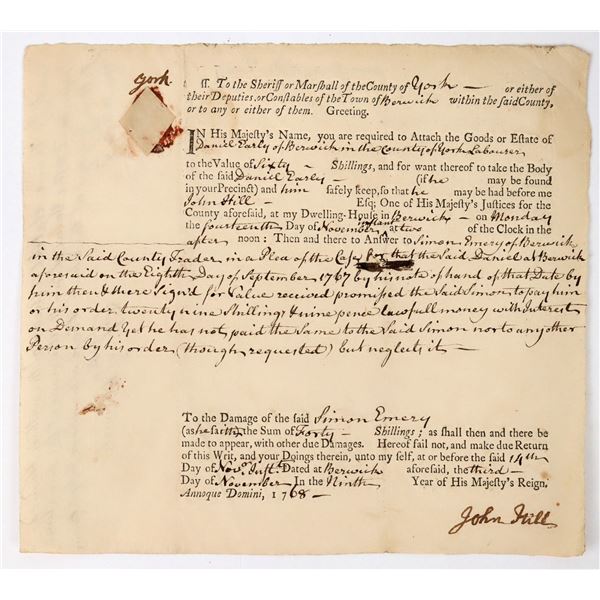 York
ſſ. To the Sheriff or Marshall of the County of York — or either of
their Deputies, or Constables of the Town of Berwick within the said County,
or to any or either of them. Greeting.
IN His Majesty's Name, you are required to Attach the Goods or Estate of
Daniel Early of Berwick in the County of York Labourer
to the Value of Sixty — Shillings, and for want thereof to take the Body
of the said Daniel Early — (if he may be found
in your Precinct) and him safely keep, so that he may be had before me
John Hill — Esq; One of His Majesty's Justices for the
County aforesaid, at my Dwelling-House in Berwick — on Monday
the fourteenth Day of November instant at two of the Clock in the
after noon: Then and there to Answer to Simon Emery of Berwick
in the Said County Trader in a Plea of the Case for that the Said Daniel at Berwick
aforesaid on the Eighth Day of September 1767 by his note of hand of that Date by
him then & there Sign'd for Value received promised the Said Simon to pay him
or his order, twenty nine Shillings & nine pence lawfull money with Interest
on Demand Yet he has not paid the Same to the Said Simon nor to any other
Person by his order (though requested) but neglects it —
To the Damage of the said Simon Emery
(as he saith) the Sum of Forty — Shillings; as shall then and there be
made to appear, with other due Damages. Hereof fail not, and make due Return
of this Writ, and your Doings therein, unto my self, at or before the said 14th
Day of Novr. Inst. Dated at Berwick aforesaid, the third —
Day of November In the Ninth Year of His Majesty's Reign.
Annoque Domini, 1768 —
John Hill